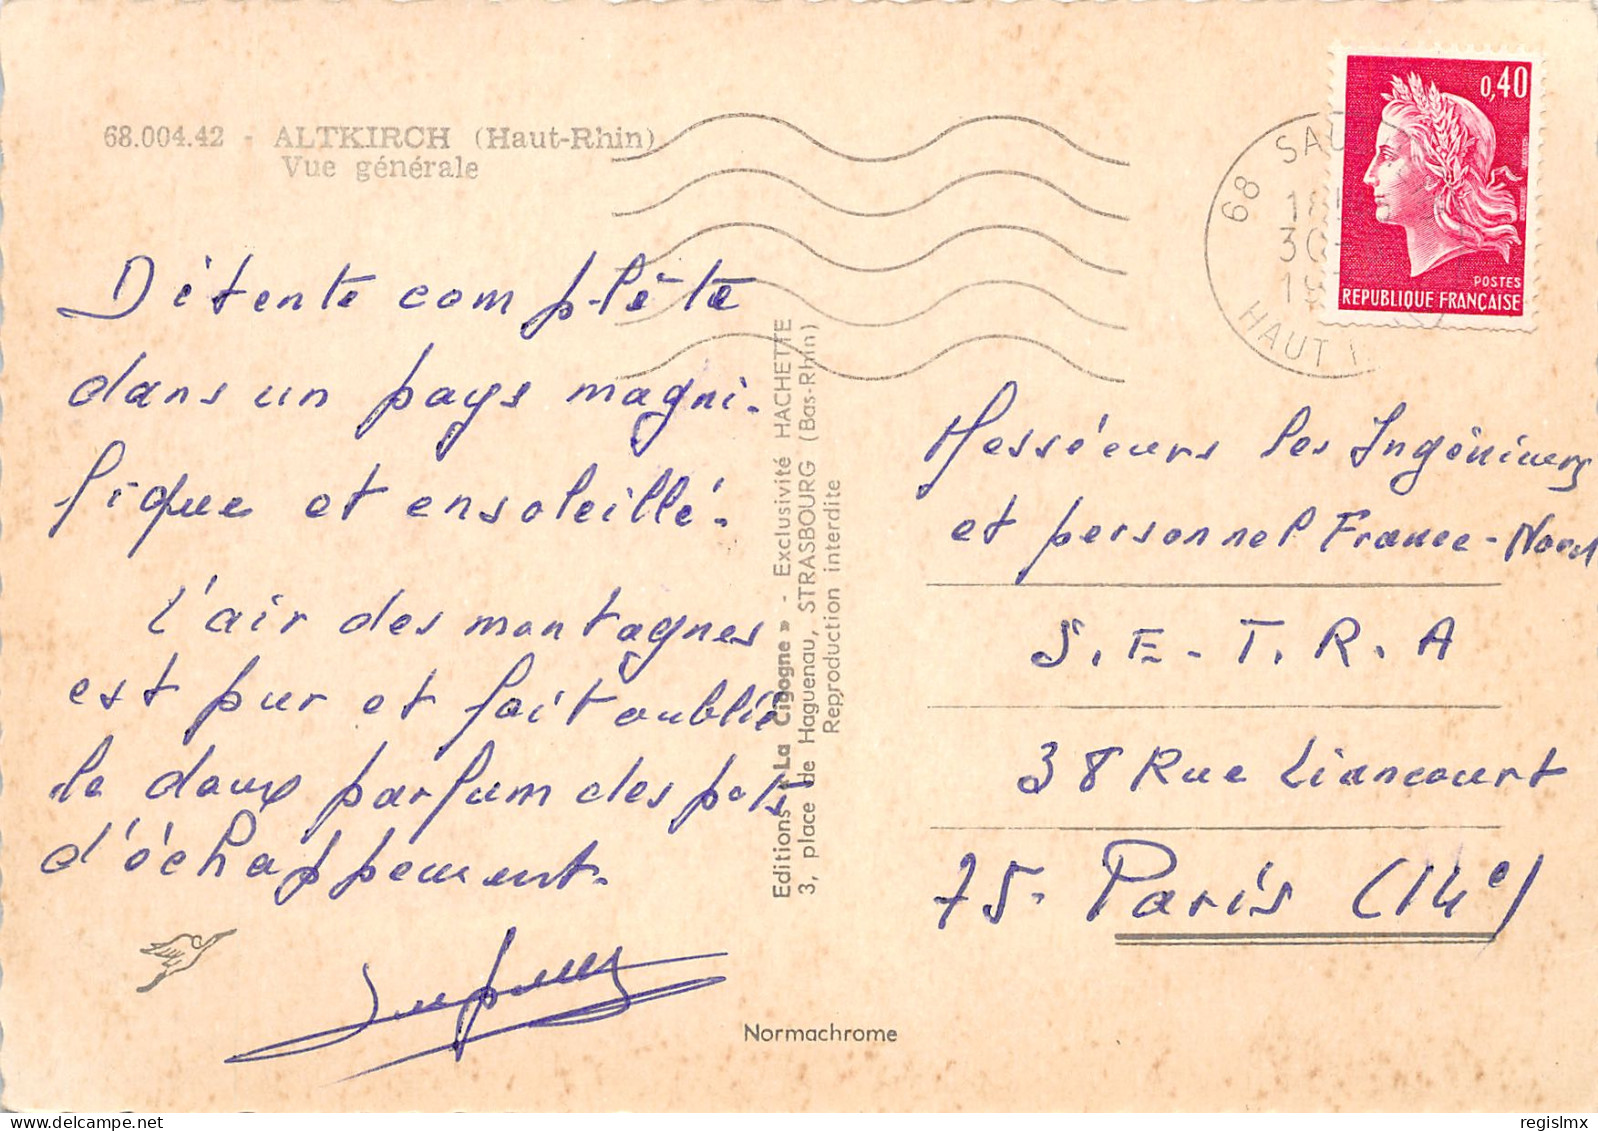 68.004.42 - ALTKIRCH (Haut-Rhin)
Vue générale
Détente complète
dans un pays magni-
fique et ensoleillé.
L'air des montagnes
est pur et fait oublier
le doux parfum des pots
d'échappement.
Editions « La Cigogne » - Exclusivité HACHETTE
3, place de Haguenau, STRASBOURG (Bas-Rhin)
Reproduction interdite
Normachrome
0,40
POSTES
RÉPUBLIQUE FRANÇAISE
68
HAUT
Messieurs les Ingénieurs
et personnel France-Nord
S.E.T.R.A
38 Rue Liancourt
75- Paris (14e)
regislmx